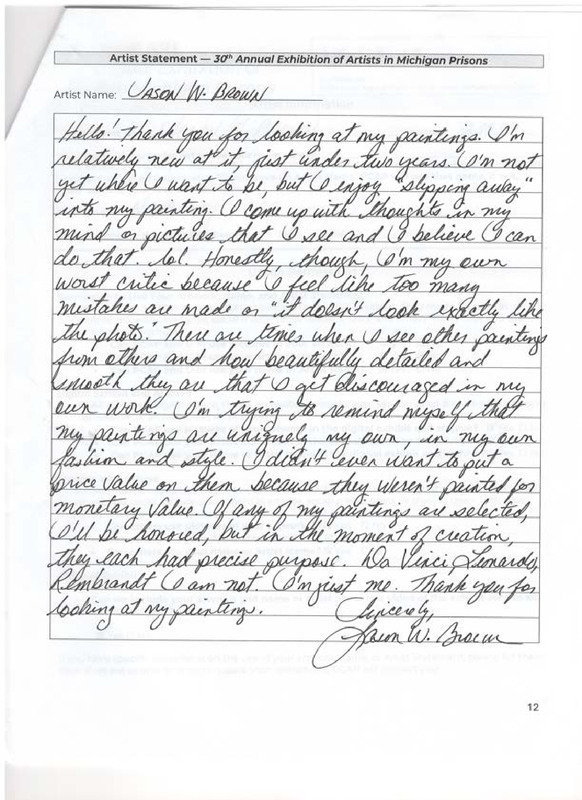 Artist Statement — 30th Annual Exhibition of Artists in Michigan Prisons
Artist Name: JASON W. BROWN
Hello! Thank you for looking at my paintings. I'm
relatively new at it, just under two years. I'm not
yet where I want to be, but I enjoy "slipping away"
into my painting. I come up with thoughts in my
mind or pictures that I see and I believe I can
do that. lol. Honestly, though, I'm my own
worst critic because I feel like too many
mistakes are made or "it doesn't look exactly like
the photo." There are times when I see other paintings
from others and how beautifully detailed and
smooth they are that I get discouraged in my
own work. I'm trying to remind myself that
my paintings are uniquely my own, in my own
fashion and style. I didn't even want to put a
price value on them because they weren't painted for
monetary value. If any of my paintings are selected,
I'll be honored, but in the moment of creation,
they each had precise purpose. Da Vinci Leonardo,
Rembrandt I am not. I'm just me. Thank you for
looking at my paintings.
Sincerely,
Jason W. Brown
12